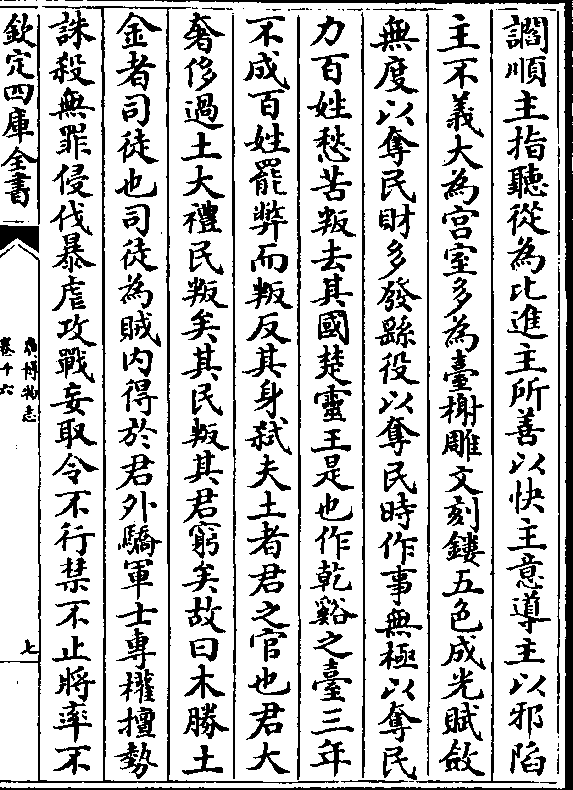 讇順主指聽從為比進主所善以快主意導主以邪陷
主不義大為宫室多為臺榭雕文刻鏤五色成光賦斂
無度以奪民財多發繇役以奪民時作事無極以奪民
力百姓愁苦叛去其國楚靈王是也作乾谿之臺三年
不成百姓罷弊而叛反其身弑夫土者君之官也君大
奢侈過土大禮民叛矣其民叛其君窮矣故曰木勝土
金者司徒也司徒為賊内得於君外驕軍士專權擅勢
誅殺無罪侵伐暴虐攻戰妄取令不行禁不止將率不
欽定四庫全書
廣博物志
卷十六
七